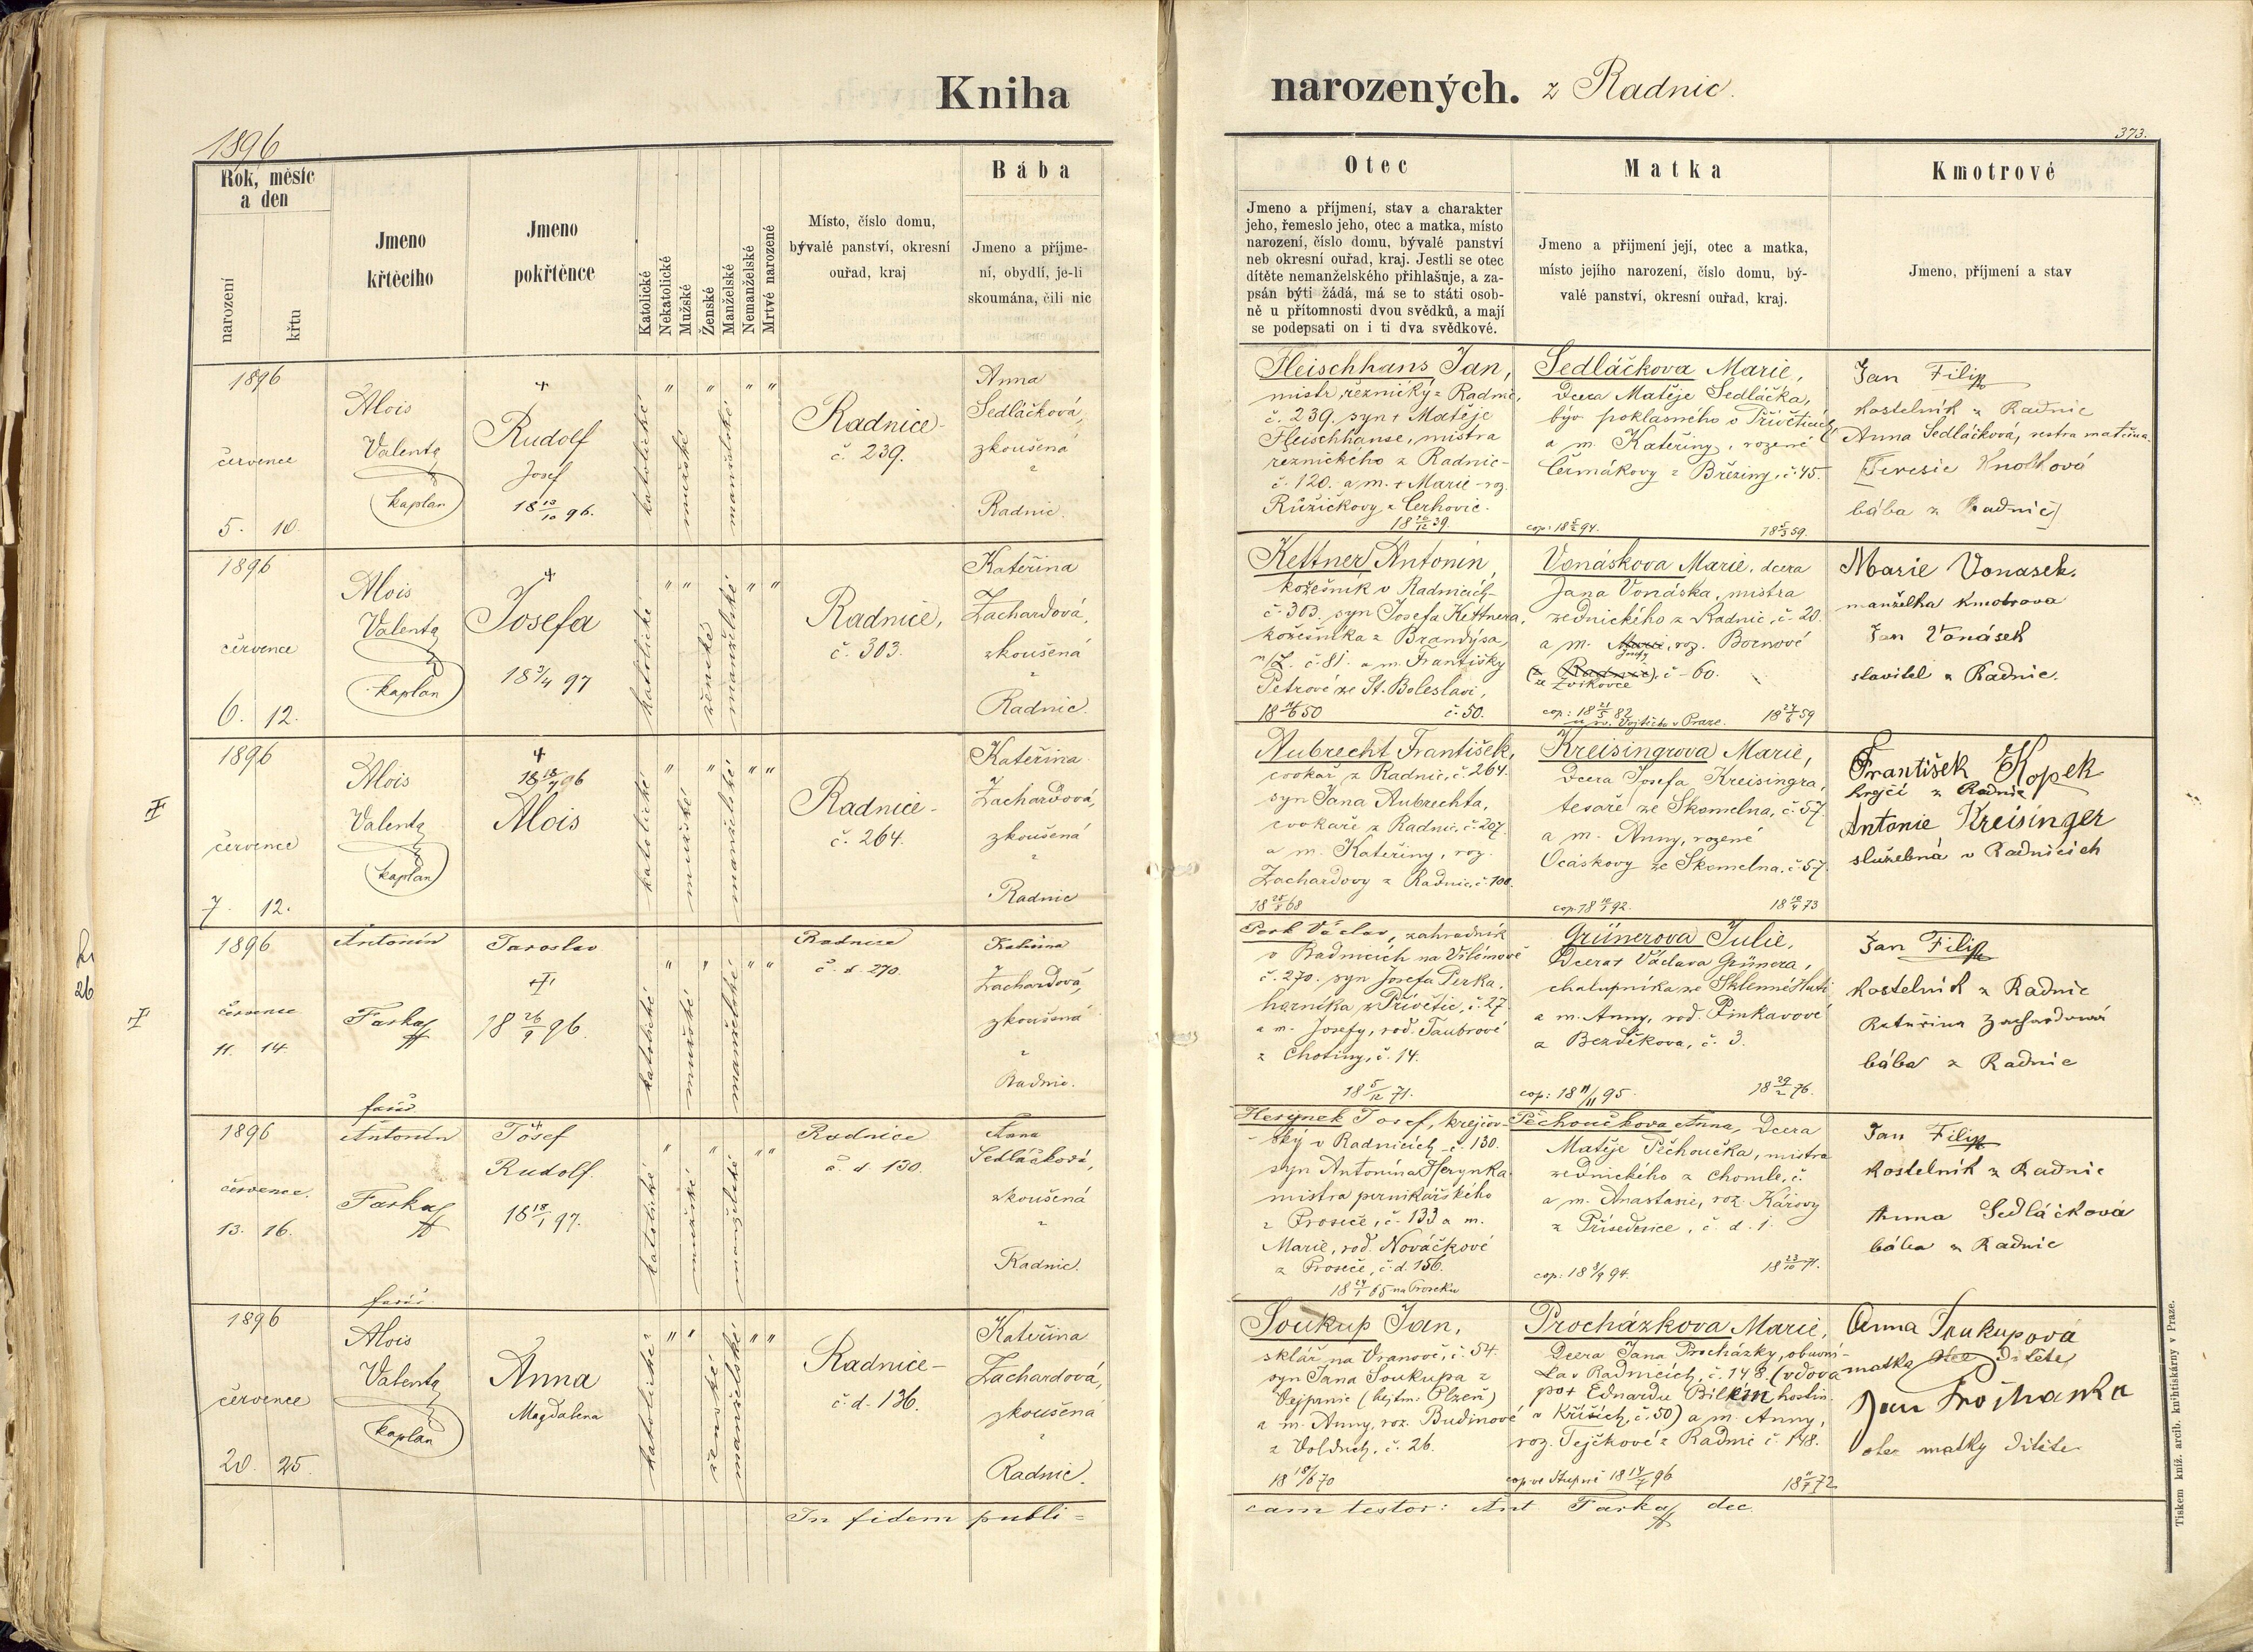 Kniha
narozených. z Radnic.
1896
373.
Rok, měsíc
a den
narození
křtu
Jmeno
křtěcího
Jmeno
pokřtěnce
Katolické
Nekatolické
Mužské
Ženské
Manželské
Nemanželské
Mrtvé narozené
Místo, číslo domu,
bývalé panství, okresní
ouřad, kraj
Bába
Jmeno a příjme-
ní, obydlí, je-li
skoumána, čili nic
Otec
Jmeno a příjmení, stav a charakter
jeho, řemeslo jeho, otec a matka, místo
narození, číslo domu, bývalé panství
neb okresní ouřad, kraj. Jestli se otec
dítěte nemanželského přihlašuje, a za-
psán býti žádá, má se to státi osob-
ně u přítomnosti dvou svědků, a mají
se podepsati on i ti dva svědkové.
Matka
Jmeno a přijmení její, otec a matka,
místo jejího narození, číslo domu, bý-
valé panství, okresní ouřad, kraj.
Kmotrové
Jmeno, příjmení a stav
1896
července
5. 10.
Alois
Valenta
kaplan
+
Rudolf
Josef
18 13/10 96.
katolické
" mužské " manželské " "
Radnice
č. 239.
Anna
Sedláčková,
zkoušená
z
Radnic.
Fleischhans Jan,
mistr řeznický z Radnic,
č. 239. syn + Matěje
Fleischhanse, mistra
řeznického z Radnic
č. 120. a m. + Marie roz.
Růžičkovy z Cerhovic.
18 26/12 39.
Sedláčkova Marie,
dcera Matěje Sedláčka,
býv. poklasného v Přívěticích
a m. Kateřiny, rozené
Čermákovy z Březiny, č. 45.
Jan Filip
kostelník z Radnic
Anna Sedláčková, sestra matčina.
bába z Radnic
1896
července
6. 12.
Alois
Valenta
kaplan
+
Josefa
18 3/4 97
katolické " " ženské manželské " "
Radnice,
č. 303.
Kateřina
Zachardová,
zkoušená
z
Radnic.
Kettner Antonín,
kožešník v Radnicích
č. 303. syn Josefa Kettnera,
kožešníka z Brandýsa,
n/L. č. 81. a m. Františky
Petrové ze St. Boleslavi,
č. 50.
Vonáskova Marie, dcera
Jana Vonáska, mistra
zednického z Radnic, č. 20.
a m. Marie, roz. Bornové
Josefy
(z Radnic), č. 60.
ze Zvíkovce
cop: 18 21/5 82
u sv. Vojtěcha v Praze. 18 27/6 59
Marie Vonasek.
manželka kmotrova
Jan Vonásek
stavitel z Radnic.
1896
července
7. 12.
Alois
Valenta
kaplan
+
18 18/7 96
Alois
katolické " mužské " manželské " "
Radnice
č. 264.
Kateřina
Zachardová,
zkoušená
z
Radnic
Aubrecht František,
cvokař z Radnic, č. 264.
syn Jana Aubrechta,
cvokaře z Radnic, č. 207.
a m. Kateřiny, roz.
Zachardovy z Radnic, č. 100.
Kreisingrova Marie,
dcera Josefa Kreisingra,
tesaře ze Skomelna, č. 57.
a m. Anny, rozené
Ocáskovy ze Skomelna, č. 57.
František Kopek
krejčí z Radnic
Antonie Kreisinger
služebná v Radnicích
1896
července
11. 14.
Antonín
Farka
farář
Jaroslav
+
18 26/9 96.
katolické " mužské " manželské " "
Radnice
č. d. 270.
Kateřina
Zachardová,
zkoušená
z
Radnic.
Perk Václav, zahradník
v Radnicích na Vilémově
č. 270. syn Josefa Perka,
horníka z Přívětic, č. 27
a m. Josefy, rod. Taubrové
z Chotiny, č. 14.
18 5/12 71.
Grünerova Julie,
dcera + Václava Grünera,
chalupníka ze Sklenné Huti
a m. Anny, rod. Pinkavové
z Bezděkova, č. 3.
cop: 18 11/11 95. 18 29/2 76.
Jan Filip
kostelník z Radnic
Kateřina Zachardová
bába z Radnic
1896
července.
13. 16.
Antonín
Farka
farář.
+
Josef
Rudolf.
18 18/1 97.
katolické " mužské " manželské " "
Radnice
č. d. 130.
Anna
Sedláčková,
zkoušená
z
Radnic.
Herynek Josef, krejčov-
ský v Radnicích č. 130.
syn Antonína Herynka
mistra perníkářského
z Proseče, č. 133 a m.
Marie, rod. Nováčkové
z Proseče, č. d. 156.
Pěchoučkova Anna, dcera
Matěje Pěchoučka, mistra
zednického z Chomle, č.
a m. Anastasie, roz. Károvy
č. d. 1.
cop: 18 3/9 94. 18 23/10 71.
Jan Filip
kostelník z Radnic
Anna Sedláčková
bába z Radnic
1896
července
20. 25.
Alois
Valenta
kaplan
Anna
Magdalena
katolické " " ženské manželské " "
Radnice
č. d. 136.
Kateřina
Zachardová,
zkoušená
z
Radnic.
Soukup Jan,
sklář na Vranově, č. 54.
syn Jana Soukupa z
Vejprnic (hejtm. Plzeň)
a m. Anny, roz. Budínové
č. 26.
Procházkova Marie,
dcera Jana Procházky, obuvní-
ka v Radnicích, č. 148. (vdova
po + Eduardu Bílkem hostin.
v Kříších, č. 50) a m. Anny,
roz. Tejčkové z Radnic č. 148.
cop ve Stupně 18 14/7 96
Anna Soukupová
matka otce dítěte
Jan Procházka
otec matky dítěte
In fidem publi=
cam testor: Ant Farka dec.
Tiskem kníž. arcib. knihtiskárny v Praze.